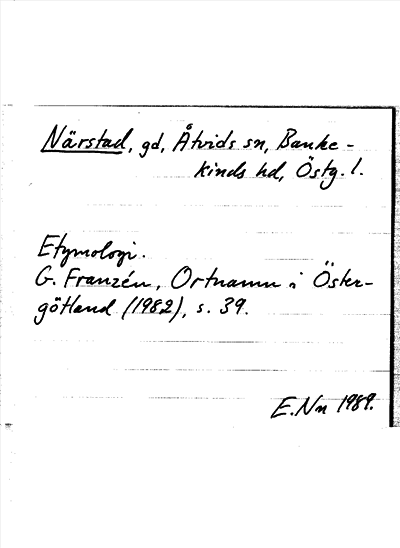 Närstad, gd, Åtvids sn, Banke-
kinds hd, Östg. l.
Etymologi.
G. Franzén, Ortnamn i Öster-
götland (1982), s. 39.
E. Nn 1989.